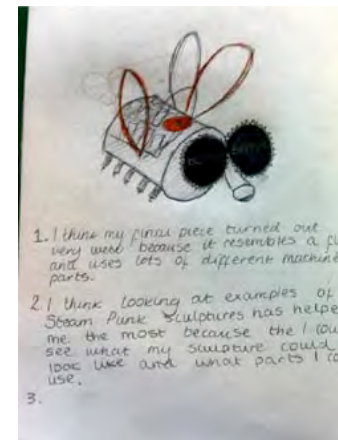 1. I think my final piece turned out
very well because it resembles a
and uses lots of different machine
parts.
2. I think looking at examples of
Steam Punk sculptures has helpe
me the most because the I cou
see what my sculpture could
look like and what parts I co
use.
3.